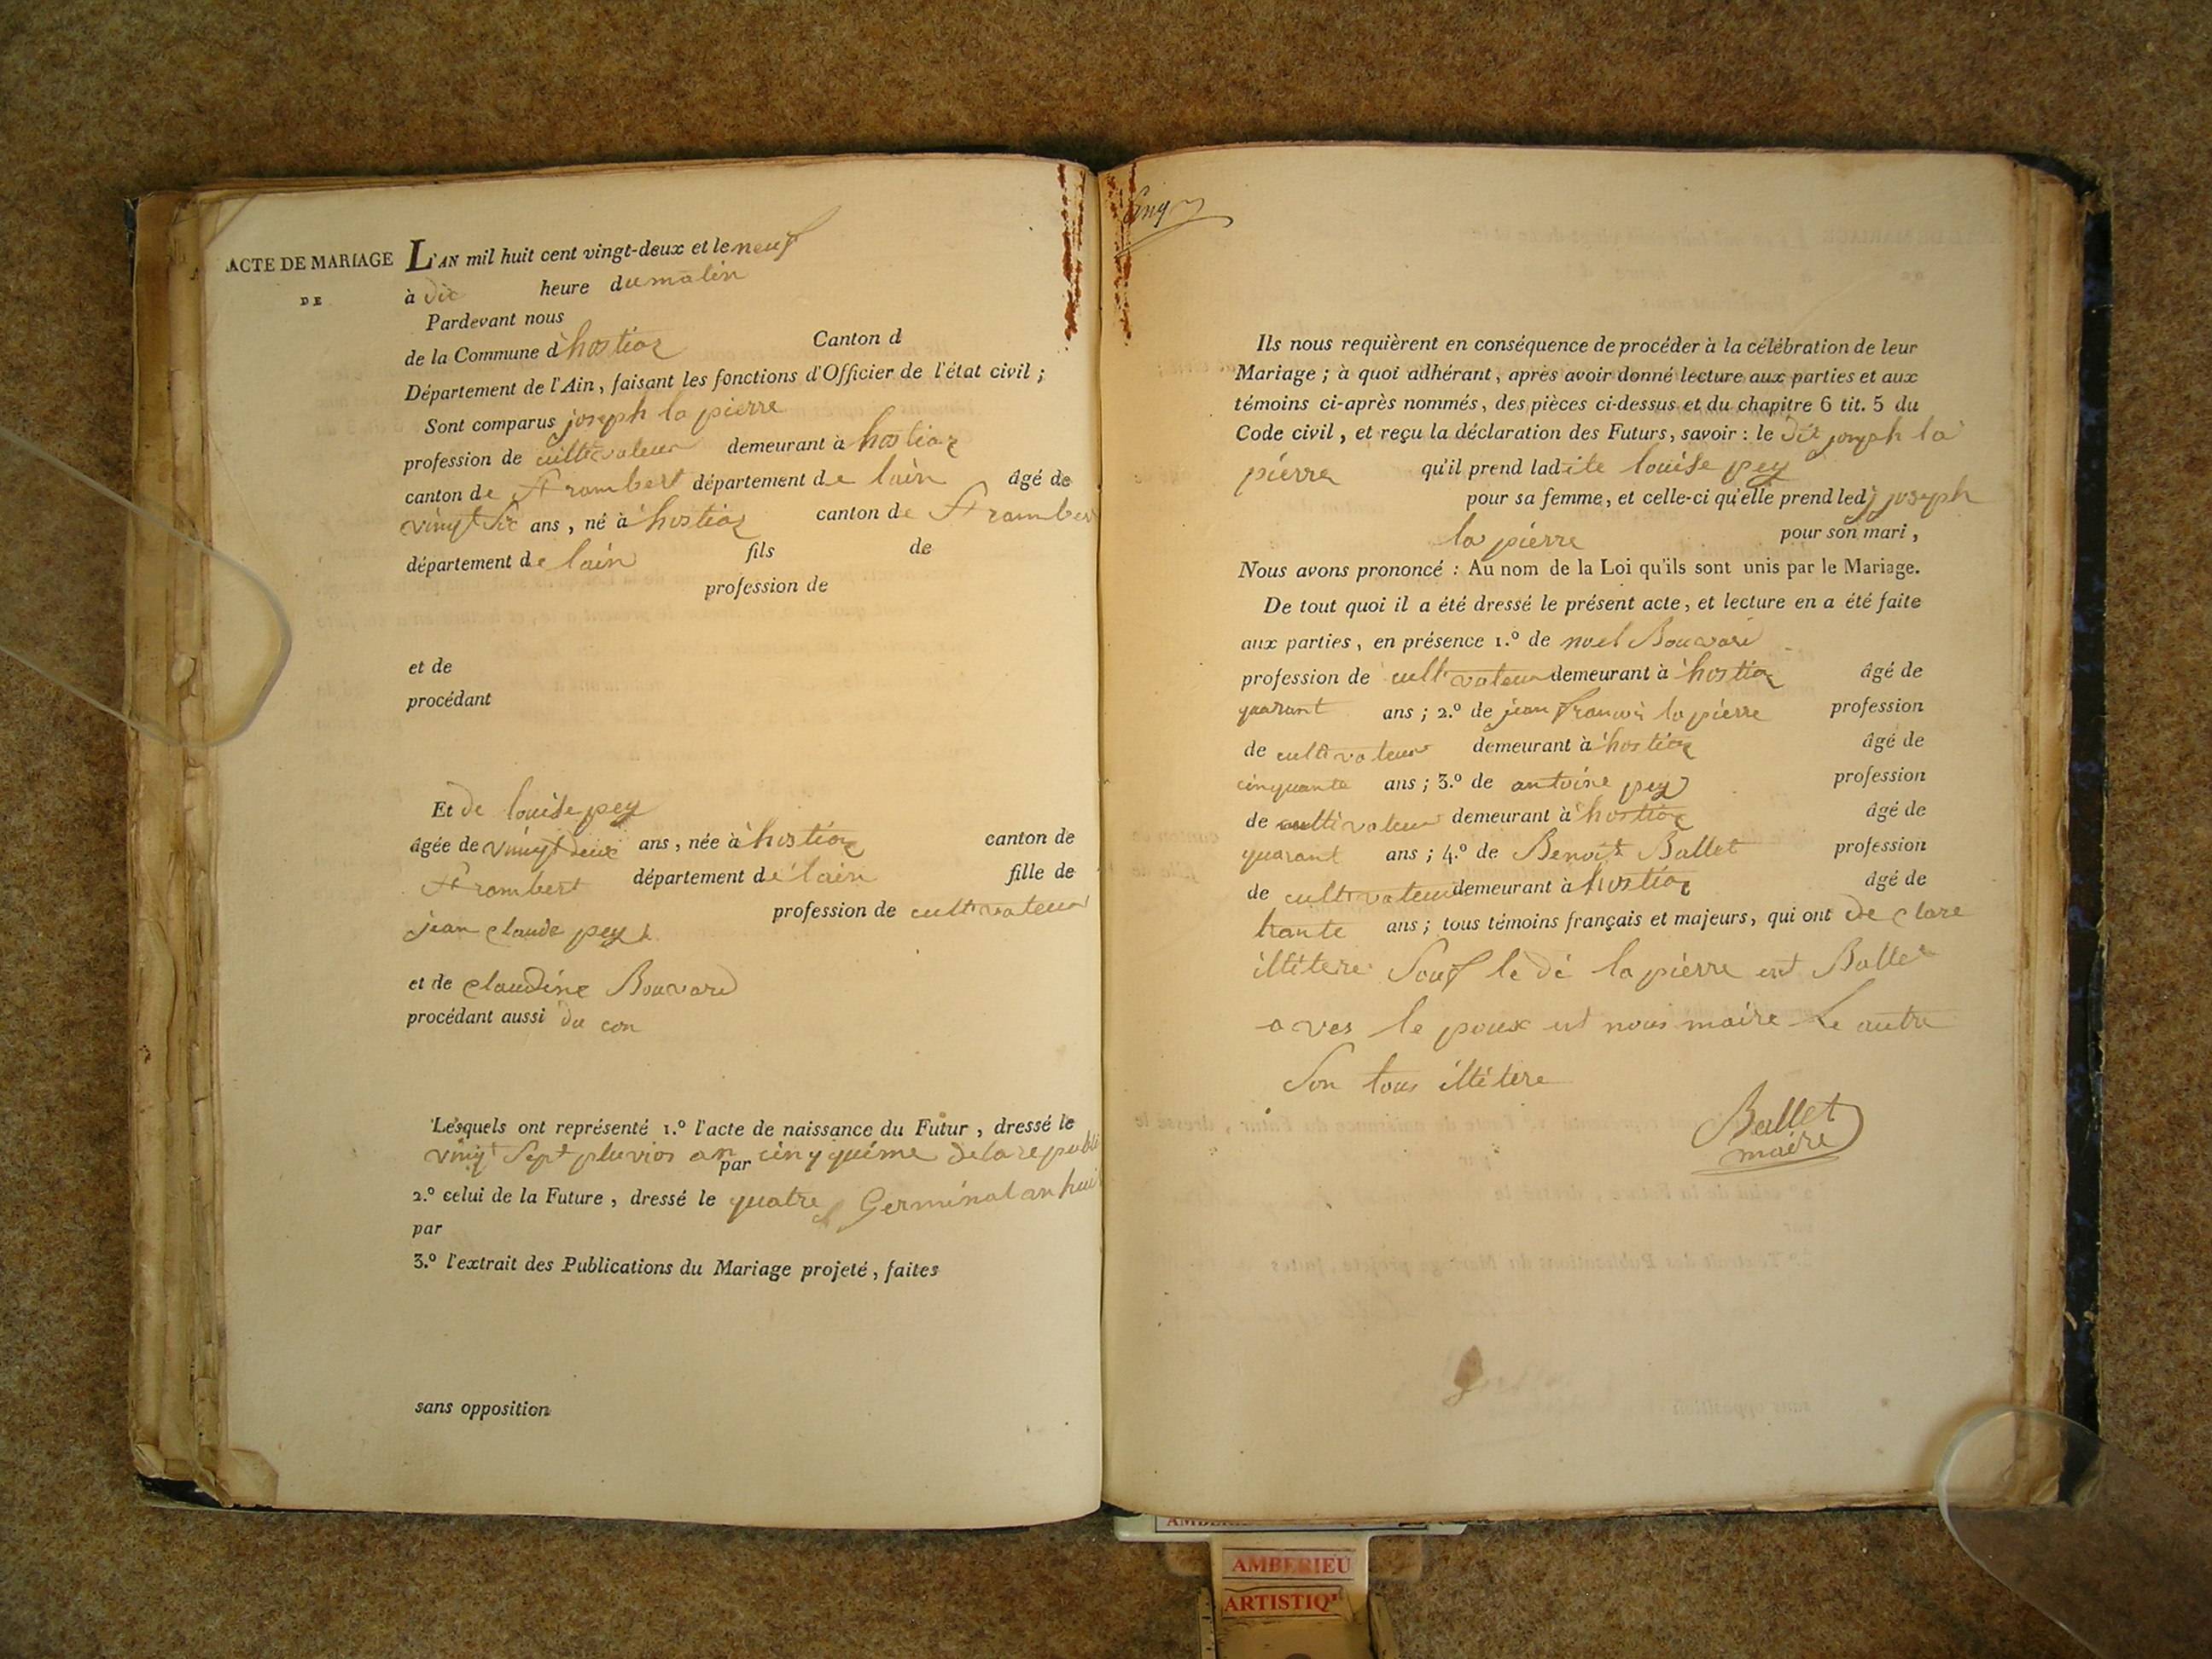 ACTE DE MARIAGE
DE
L'AN mil huit cent vingt-deux et le neuf
à dix heure du matin
Pardevant nous
de la Commune d'hostiaz Canton d
Département de l'Ain, faisant les fonctions d'Officier de l'état civil ;
Sont comparus joseph la pierre
profession de cultivateur demeurant à hostiaz
canton de St rambert département de lain âgé de
vingt sic ans, né à hostiaz canton de St rambert
département de lain fils de
profession de
et de
procédant
Et de louise pey
âgée de vingt deux ans, née à hostiaz canton de
St rambert département de lain fille de
jean claude pey profession de cultivateur
et de claudine Bouvard
procédant aussi du con
Lesquels ont représenté 1.º l'acte de naissance du Futur, dressé le
vingt Sept pluvios an cinquième de la republi
par
2.º celui de la Future, dressé le quatre Germinal an huit
par
3.º l'extrait des Publications du Mariage projeté, faites
sans opposition
Ils nous requièrent en conséquence de procéder à la célébration de leur
Mariage ; à quoi adhérant, après avoir donné lecture aux parties et aux
témoins ci-après nommés, des pièces ci-dessus et du chapitre 6 tit. 5 du
Code civil, et reçu la déclaration des Futurs, savoir : le dit joseph la
pierre qu'il prend ladite louise pey
pour sa femme, et celle-ci qu'elle prend led joseph
la pierre pour son mari,
Nous avons prononcé : Au nom de la Loi qu'ils sont unis par le Mariage.
De tout quoi il a été dressé le présent acte, et lecture en a été faite
aux parties, en présence 1.º de noel Bouvard
profession de cultivateur demeurant à hostiaz âgé de
quarant ans ; 2.º de jean francois la pierre profession
de cultivateur demeurant à hostiaz âgé de
cinquante ans ; 3.º de antoine pey profession
de cultivateur demeurant à hostiaz âgé de
quarant ans ; 4.º de Benoit Ballet profession
de cultivateur demeurant à hostiaz âgé de
trante ans ; tous témoins français et majeurs, qui ont de clare
illitere Souf le di la pierre est Ballet
a ves le poux est nous maire Le autre
Son tous illitere
Ballet
maire
AMBERIEU
ARTISTIQ